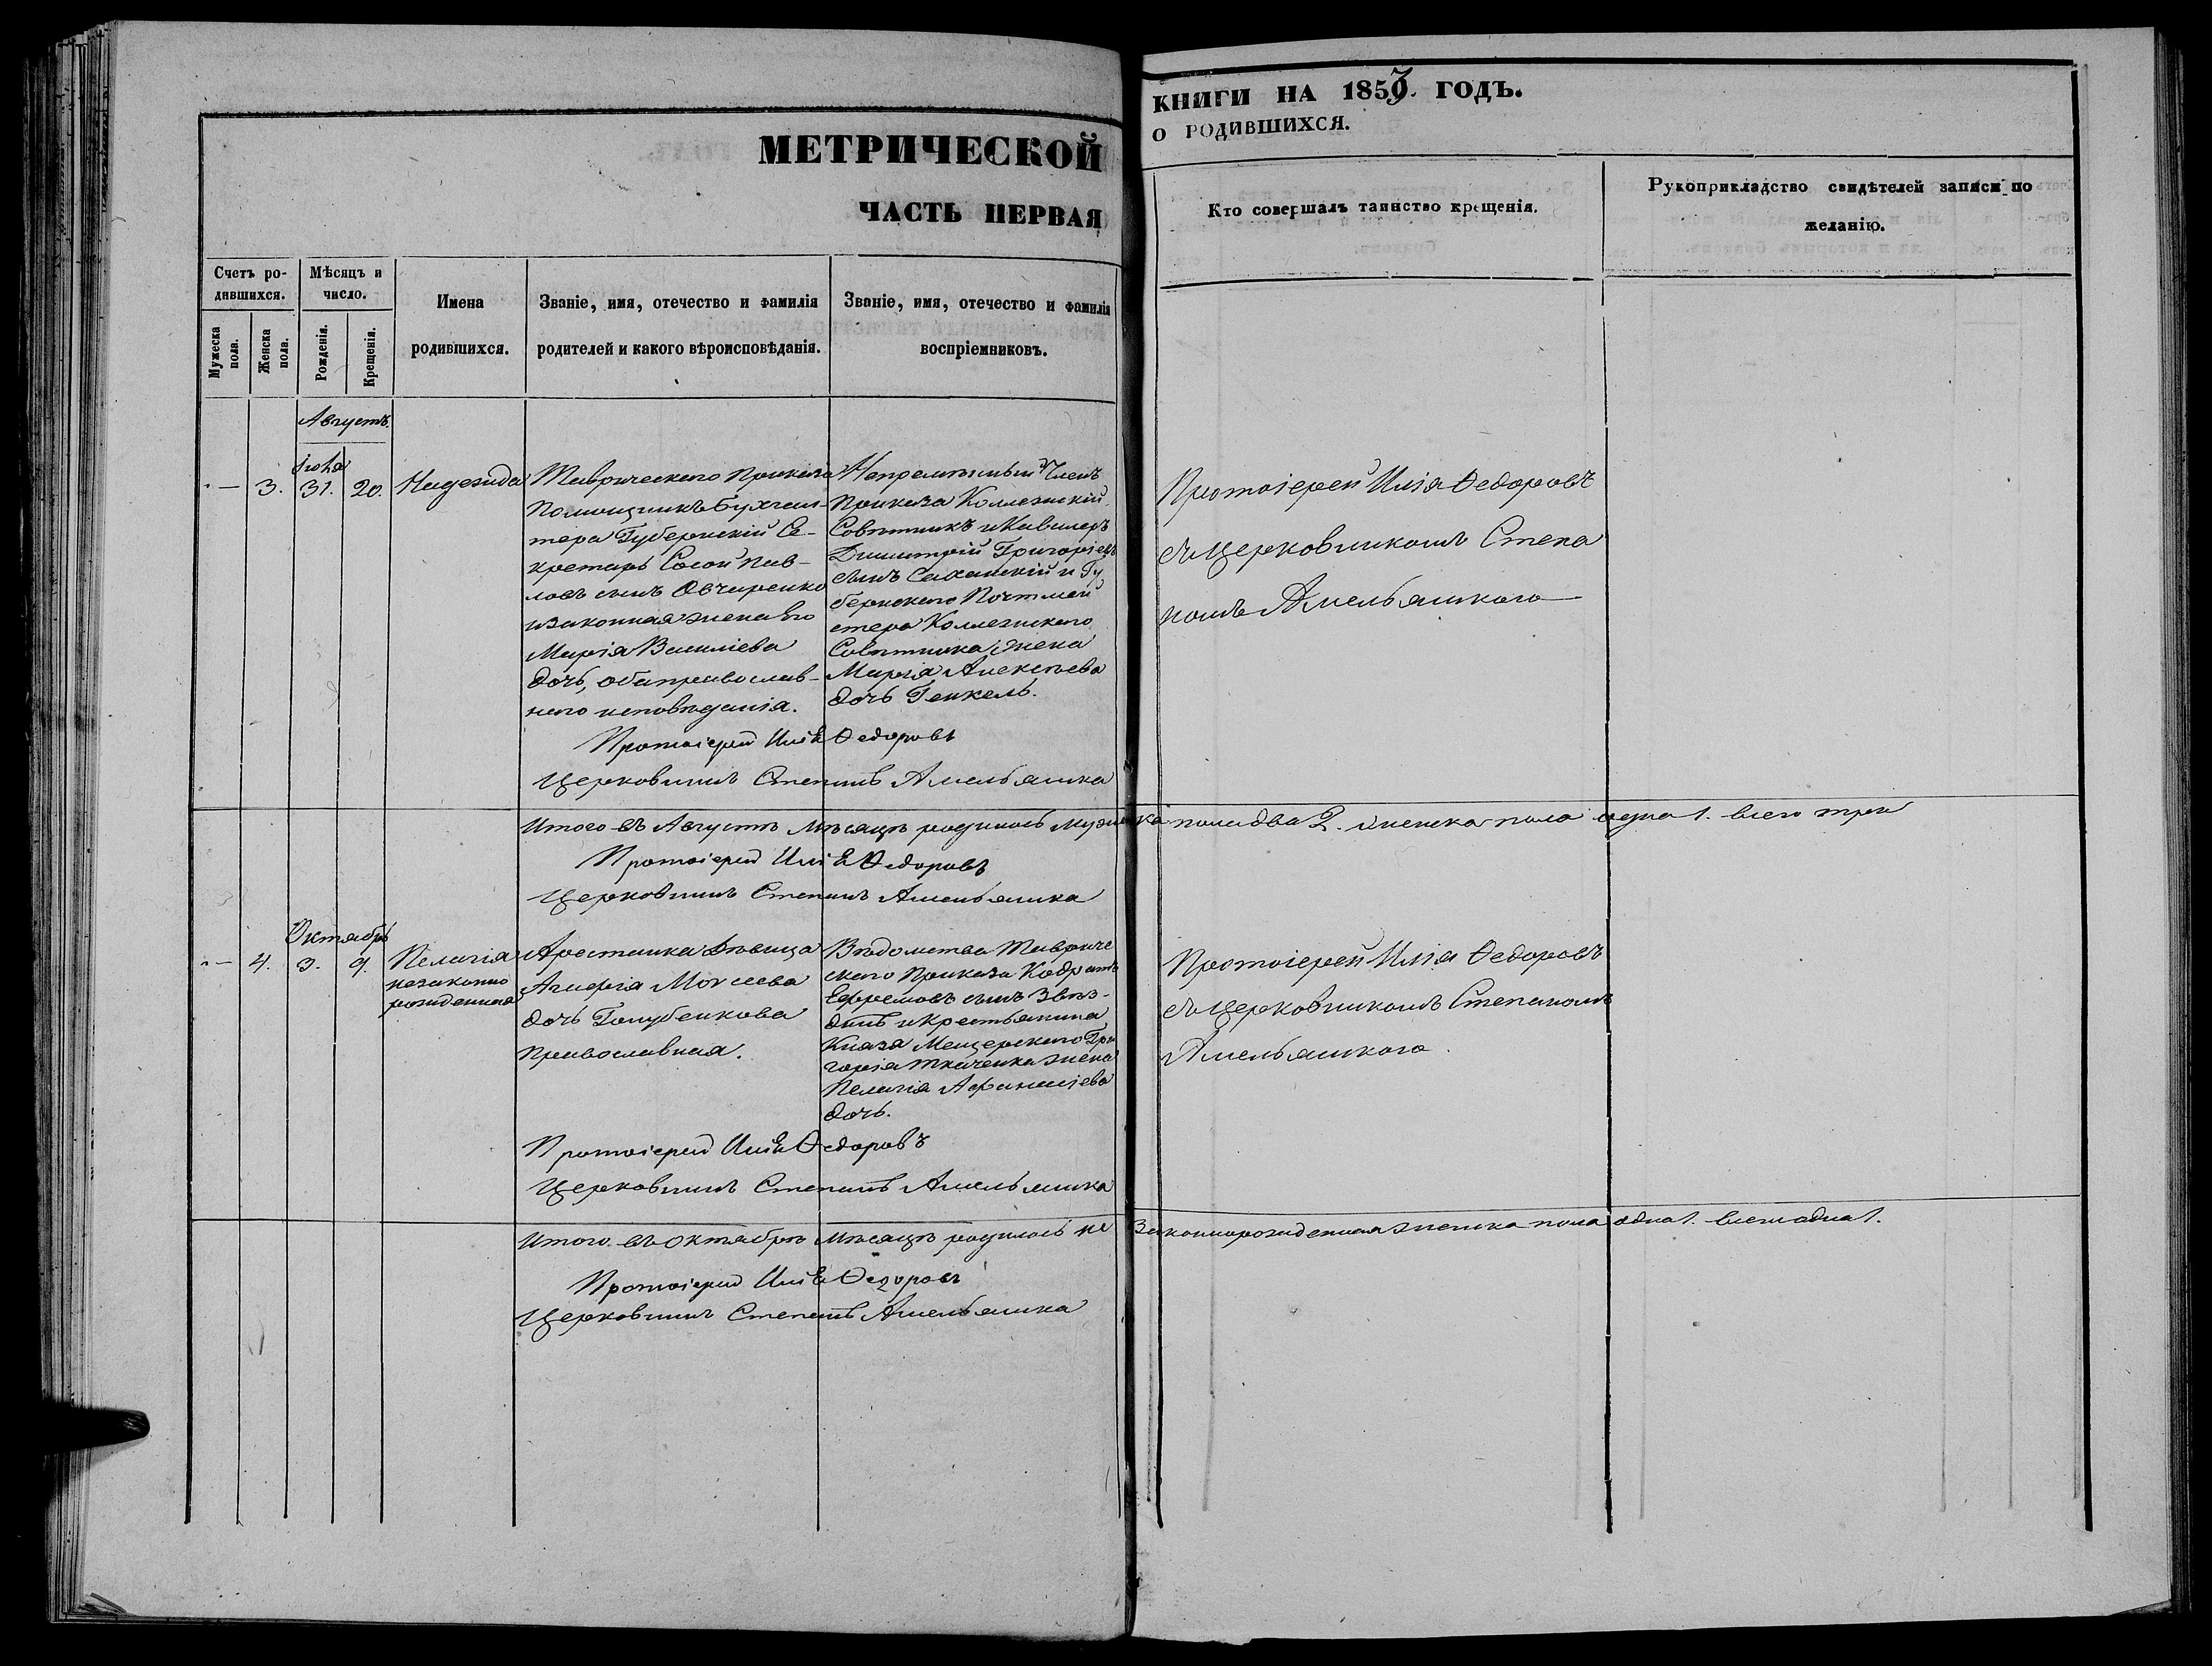 МЕТРИЧЕСКОЙ
ЧАСТЬ ПЕРВАЯ
КНИГИ НА 1853. ГОДЪ.
О РОДИВШИХСЯ.
Счетъ ро-
дившихся.
Мужеска пола.
Женска пола.
Мѣсяцъ и
число.
Рожденія.
Крещенія.
Имена
родившихся.
Званіе, имя, отечество и фамилія
родителей и какого вѣроисповѣданія.
Званіе, имя, отечество и фамилія
воспріемниковъ.
Кто совершалъ таинство крещенія.
Рукоприкладство свидѣтелей записи по
желанію.
Августъ.
Іюля
— 3. 31. 20. Надежда
Таврического Приказа
Помощникъ Бухгал-
тера Губернскій Се-
кретарь Сосой Пав-
ловъ сынъ Овчаренко
изаконная жена его
Марія Василіева
дочь, оба православ-
ного исповѣданія.
Непремѣнный Членъ
Приказа Коллежскій
Совѣтникъ и Кавалеръ
Димитрій Григоріевъ
сынъ Саханскій и Гу
бернского Почтмей
стера Коллежского
Совѣтника жена
Марія Алексѣева
дочь Генкель.
Протоіерей Илія Ѳедоровъ
съ Церковникомъ Степа
номъ Амельянкого
Протоіерей Илія Ѳедоровъ
Церковникъ Степанъ Амельянка
Итого въ Августѣ мѣсяцѣ родилось мужеска пола два 2. женска пола одна 1. всего три
Протоіерей Илія Ѳедоровъ
Церковникъ Степанъ Амельянка
Октябрь
— 4. 3. 9. Пелагія
незаконно
рожденная
Арестанка Дѣвица
Агперія Моисеева
дочь Голубенкова
Православная.
Вѣдомства Тавриче
ского Приказа Кодратъ
Ефремовъ сынъ Звѣз-
динъ и крестьянина
Князя Мещерского Гри
горія Ткаченка жена
Пелагія Афанасіева
дочь.
Протоіерей Илія Ѳедоровъ
съ Церковникомъ Степаномъ
Амельянкого.
Протоіерей Илія Ѳедоровъ
Церковникъ Степанъ Амельянка
Итого въ Октябрѣ мѣсяцѣ родилось не законнорожденная женска пола одна 1. всего одна 1.
Протоіерей Илія Ѳедоровъ
Церковникъ Степанъ Амельянка